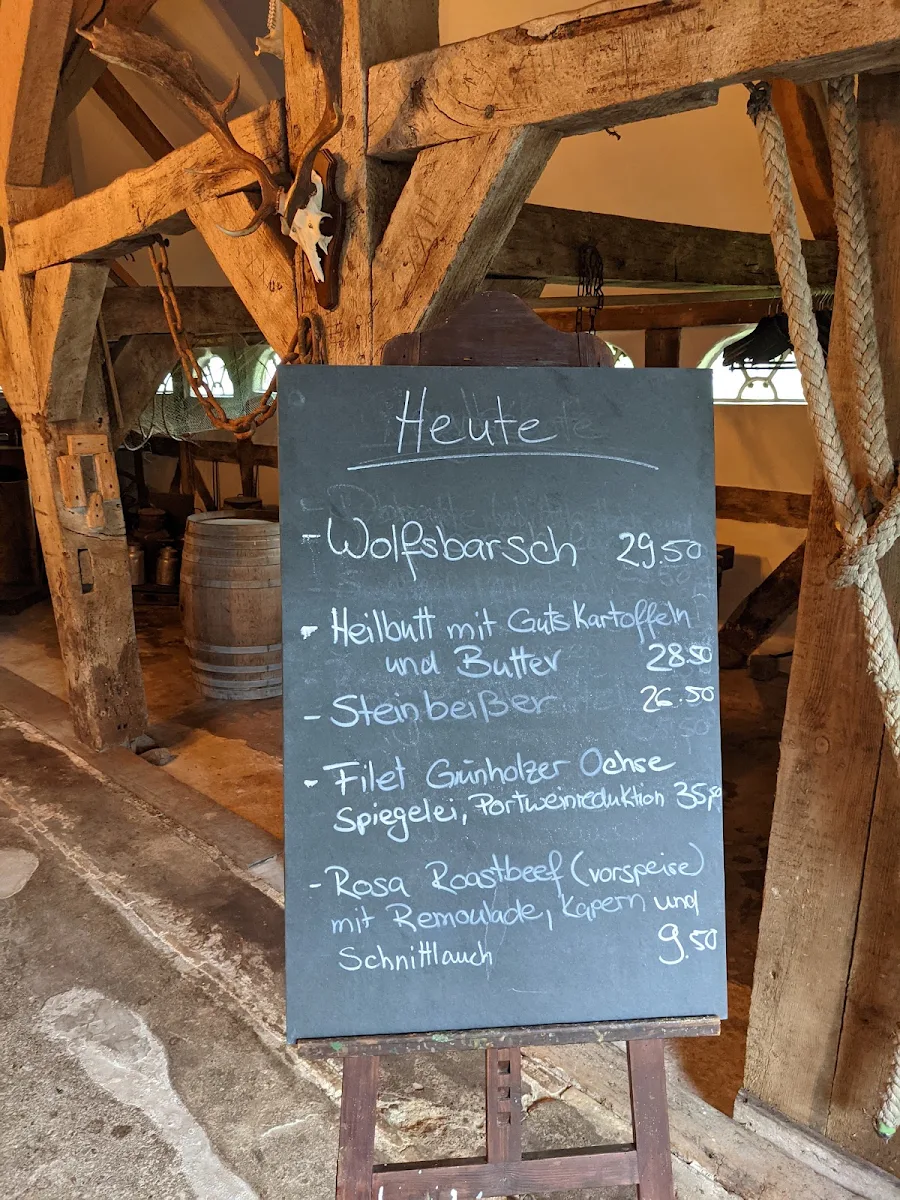 Heute
- Wolfsbarsch 29.50
- Heilbutt mit Guts Kartoffeln
und Butter 28.50
- Steinbeißer 26.50
- Filet Grünholzer Ochse
Spiegelei, Portweinreduktion 35,-
- Rosa Roastbeef (vorspeise)
mit Remoulade, Kapern und
Schnittlauch 9.50